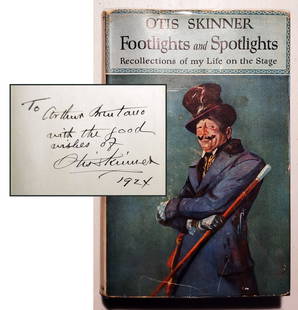 OTIS SKINNER
Footlights and Spotlights
Recollections of my Life on the Stage
To Arthur
with the good
wishes of
Otis Skinner
1924